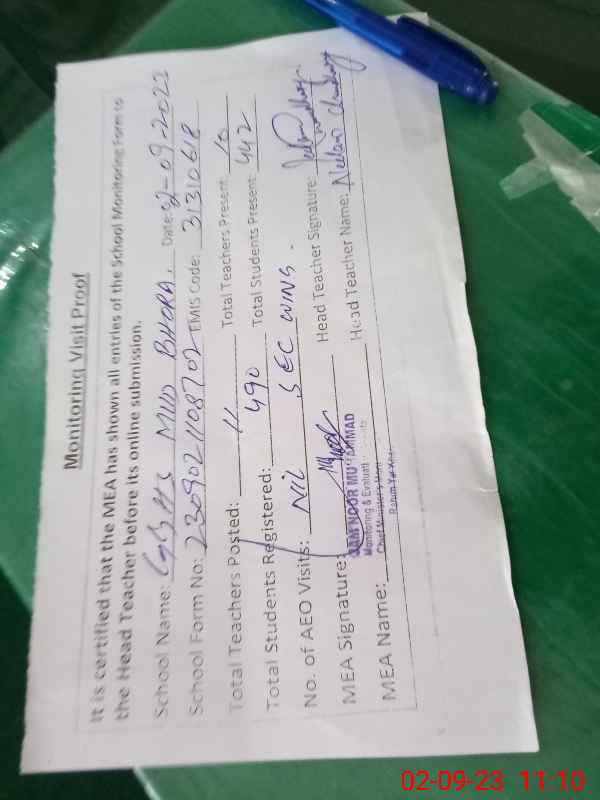 Monitoring Visit Proof
It is certified that the MEA has shown all entries of the School Monitoring Form to
the Head Teacher before its online submission.
School Name: GGHS MUD BHORA. Date: 02-09-2022
School Form No: 2309021108702 EMIS Code: 31310618
Total Teachers Posted: 11 Total Teachers Present: 10
Total Students Registered: 490 Total Students Present: 442
No. of AEO Visits: Nil SEC WING.
MEA Signature: Head Teacher Signature:
NOOR MUHAMMAD
Monitoring & Evaluati
Chief Minister's Mon
Rahim Yar
MEA Name: Head Teacher Name: Neelam Chaudhary
02-09-23 11:10